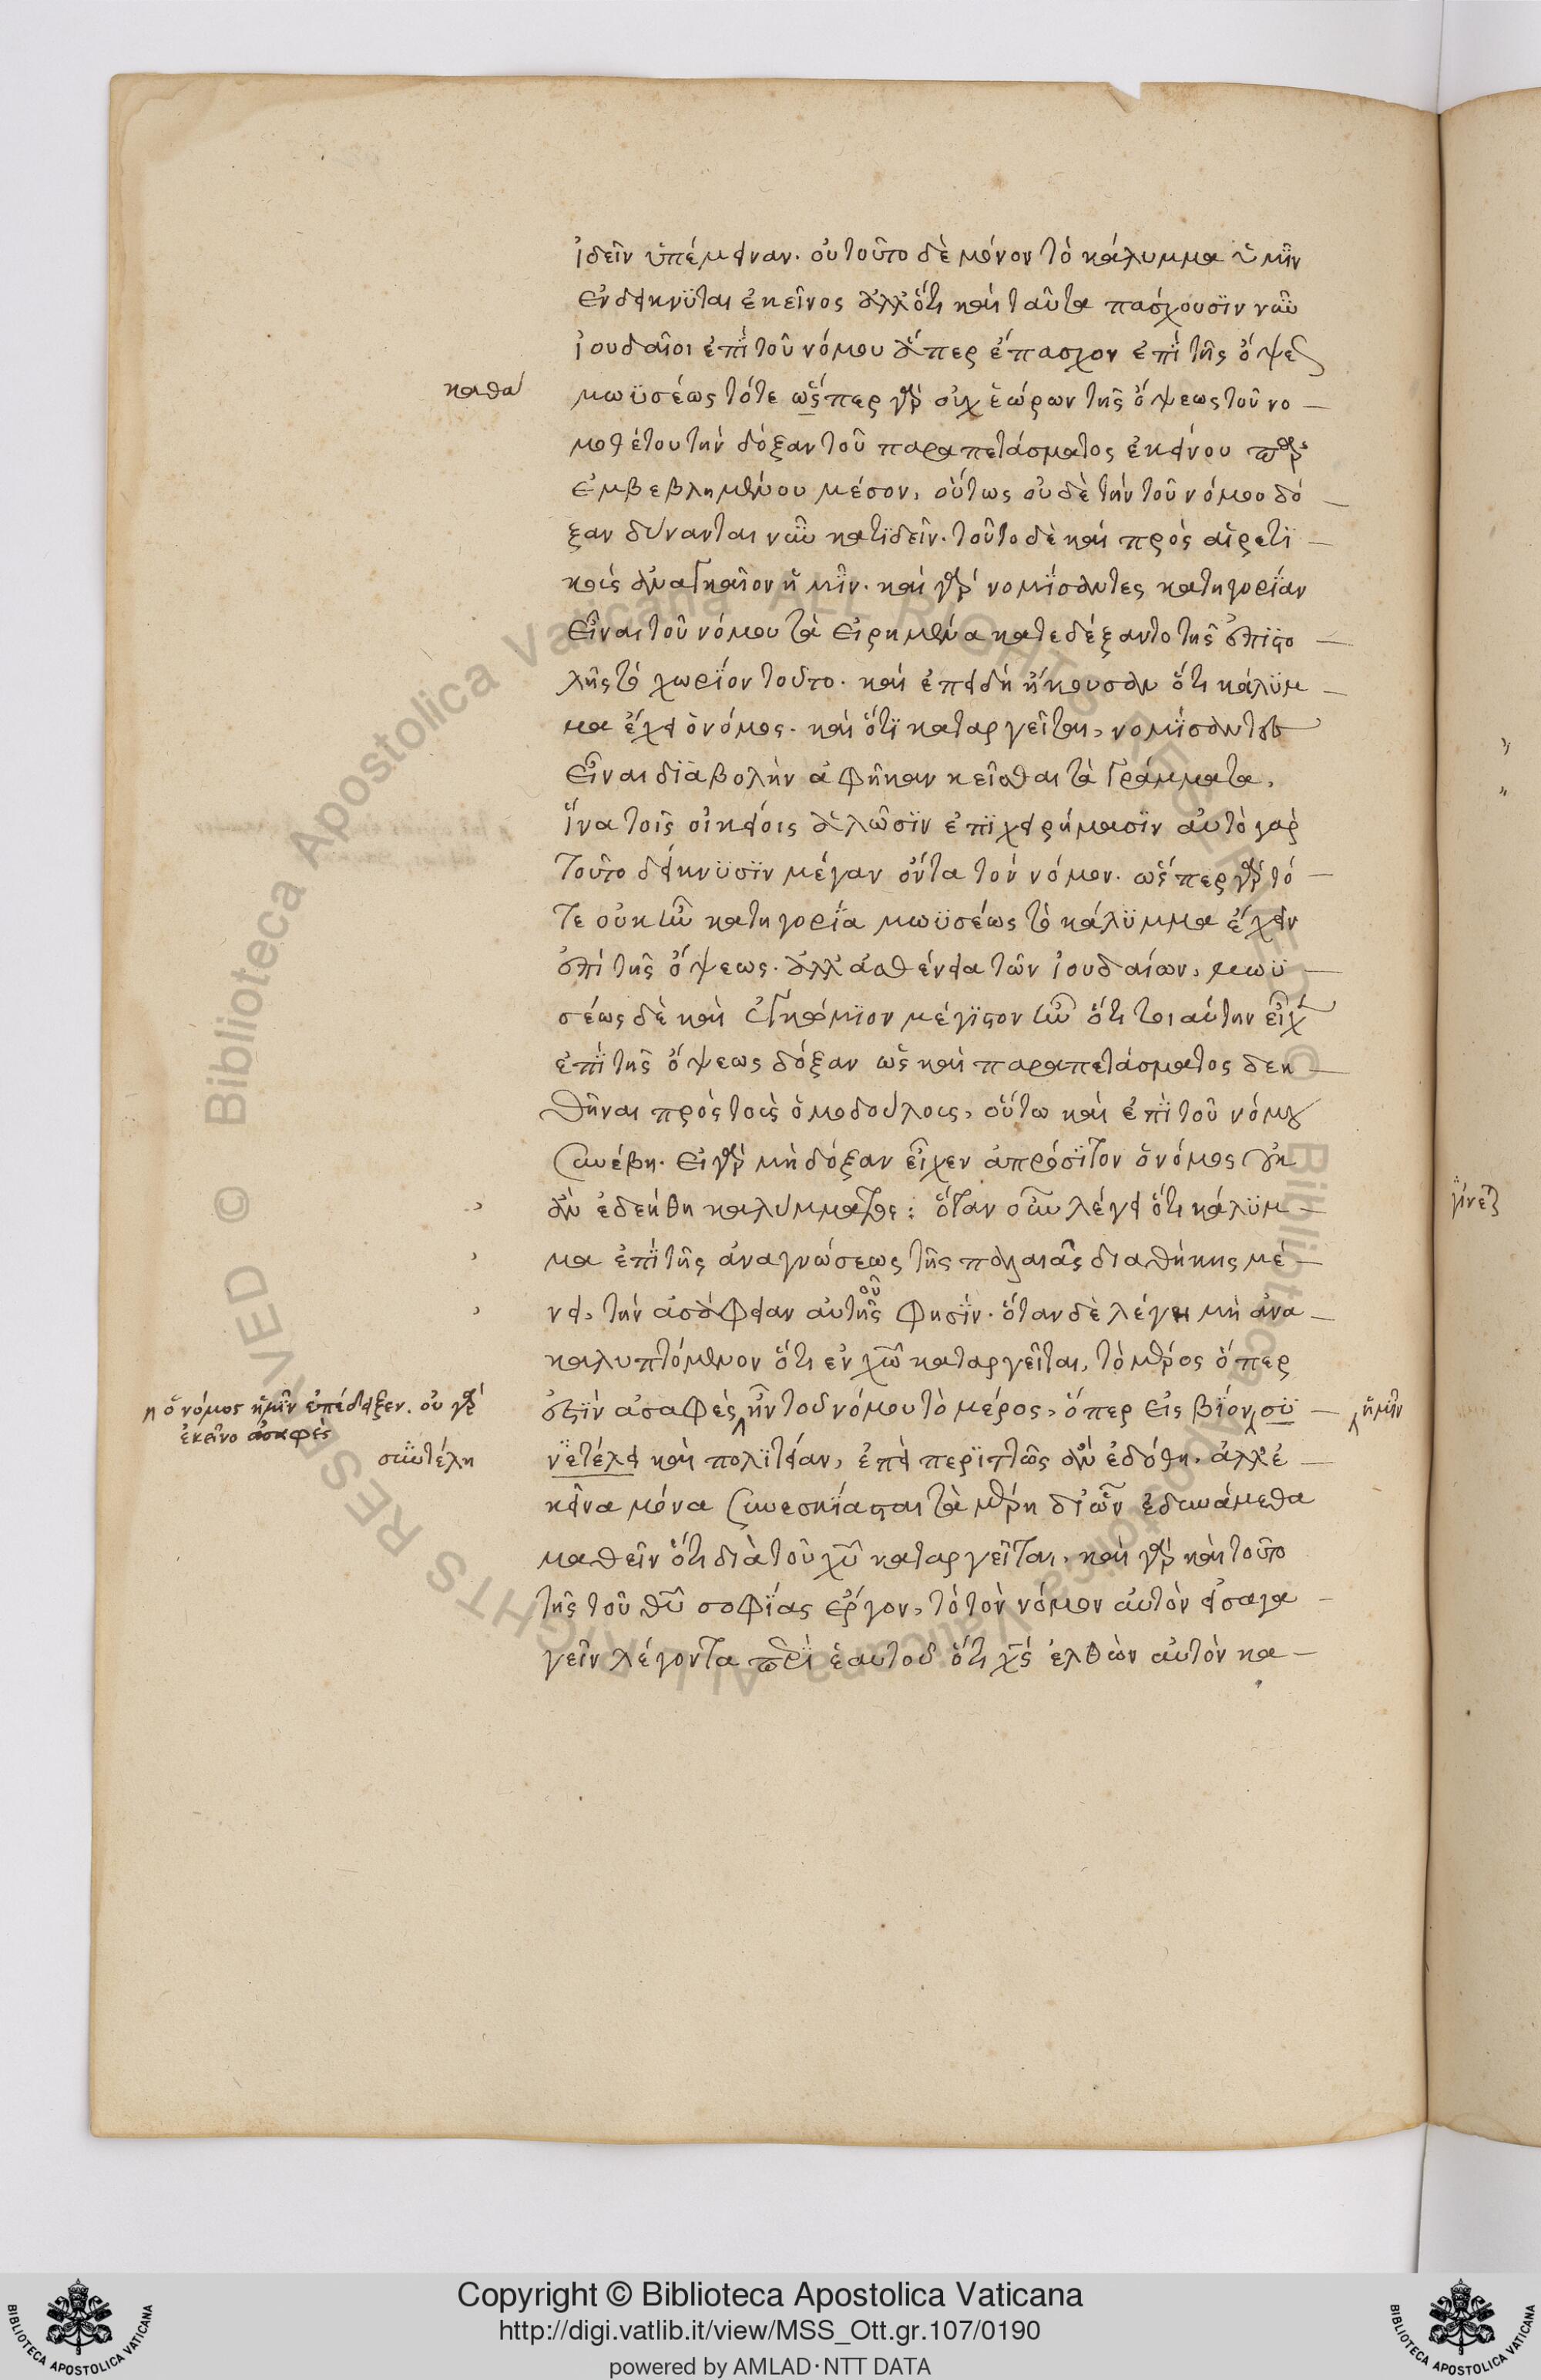 ἰδεῖν ὑπέμειναν. οὐ τοῦτο δὲ μόνον τὸ κάλυμμα ἡμῖν
ἐνδείκνυται ἐκεῖνος ἀλλ' ὅτι καὶ ταῦτα πάσχουσϊν νῦν
ἰουδαῖοι ἐπὶ τοῦ νόμου ἅπερ ἔπασχον ἐπὶ τῆς ὄψε
καθά
μωϋσέως τότε ὥσπερ γὰρ οὐχ ἑώρων τῆς ὄψεως τοῦ νο
μοθέτου τὴν δόξαν τοῦ παραπετάσματος ἐκείνου
ἐμβεβλημένου μέσον, οὕτως οὐδὲ τὴν τοῦ νόμου δό
ξαν δύνανται νῦν κατϊδεῖν. τοῦτο δὲ καὶ πρὸς αἱρετϊ
κοὺς ἀναγκαῖον ἡμῖν. καὶ γὰρ νομΐσαντες κατηγορΐαν
εἶναι τοῦ νόμου τὰ εἰρημένα κατεδέξαντο τῆς ἐπϊστο
λῆς τὸ χωρΐον τοῦτο. καὶ ἐπειδὴ ἤκουσαν ὅτι κάλϋμ
μα ἔχει ὁ νόμος. καὶ ὅτϊ καταργεῖται, νομΐσαντες
εἶναι διαβολὴν ἀφῆκαν κεῖσθαι τὰ γράμματα,
ἵνα τοῖς οἰκείοις ἁλῶσϊν ἐπϊχειρήμασϊν αὐτὸ γὰρ
τοῦτο δείκνϋσϊν μέγαν ὄντα τὸν νόμον. ὥσπερ γὰρ τό
τε οὐκ ἦν κατηγορΐα μωϋσέως τὸ κάλϋμμα ἔχειν
ἐπὶ τῆς ὄψεως. ἀλλ' ἀσθένεια τῶν ἰουδαίων, μωϋ
σέως δὲ καὶ ἐγκώμϊον μέγϊστον ἦν ὅτι τοιαύτην εἶχ
ἐπΐ τῆς ὄψεως δόξαν ὡς καὶ παραπετάσματος δεη
θῆναι πρὸς τοὺς ὁμοδούλους, οὕτω καὶ ἐπΐ τοῦ νόμου
συνέβη. εἰ γὰρ μὴ δόξαν εἶχεν ἀπρόσϊτον ὁ νόμος οὐκ
ἂν ἐδεήθη καλύμματος: ὅταν οὖν λέγει ὅτι κάλϋμ
μα ἐπΐ τῆς ἀναγνώσεως τῆς παλαιᾶς διαθήκης μέ
νει, τὴν ἀσάφειαν αὐτῆς οὗ φησΐν. ὅταν δὲ λέγη μὴ ἀνα
καλυπτόμενον ὅτι ἐν χῶ καταργεῖται, τὸ μέρος ὅπερ
η ὁ νόμος ἡμῖν ὑπέδειξεν. οὐ γὰρ
ἐκεῖνο ἀσαφὲς
ἐστϊν ἀσαφὲς ἦν τοῦ νόμου τὸ μέρος, ὅπερ εἰς βΐον συ
ἡμῖν
συντέλη
νετέλει καὶ πολϊτείαν, ἐπεὶ περϊττῶς ἂν ἐδόθη. ἀλλ' ἐ
κεῖνα μόνα συνεσκΐασται τὰ μέρη δι' ὧν ἐδυνάμεθα
μαθεῖν ὅτι διὰ τοῦ χῦ καταργεῖται, καὶ γὰρ καὶ τοῦτο
τῆς τοῦ θῦ σοφΐας ἔργον, τὸ τὸν νόμον αὐτὸν εἰσαγα
γεῖν λέγοντα περὶ ἑαυτοῦ ὅτι χς ἐλθὼν αὐτὸν κα
Copyright © Biblioteca Apostolica Vaticana
http://digi.vatlib.it/view/MSS_Ott.gr.107/0190
powered by AMLAD·NTT DATA